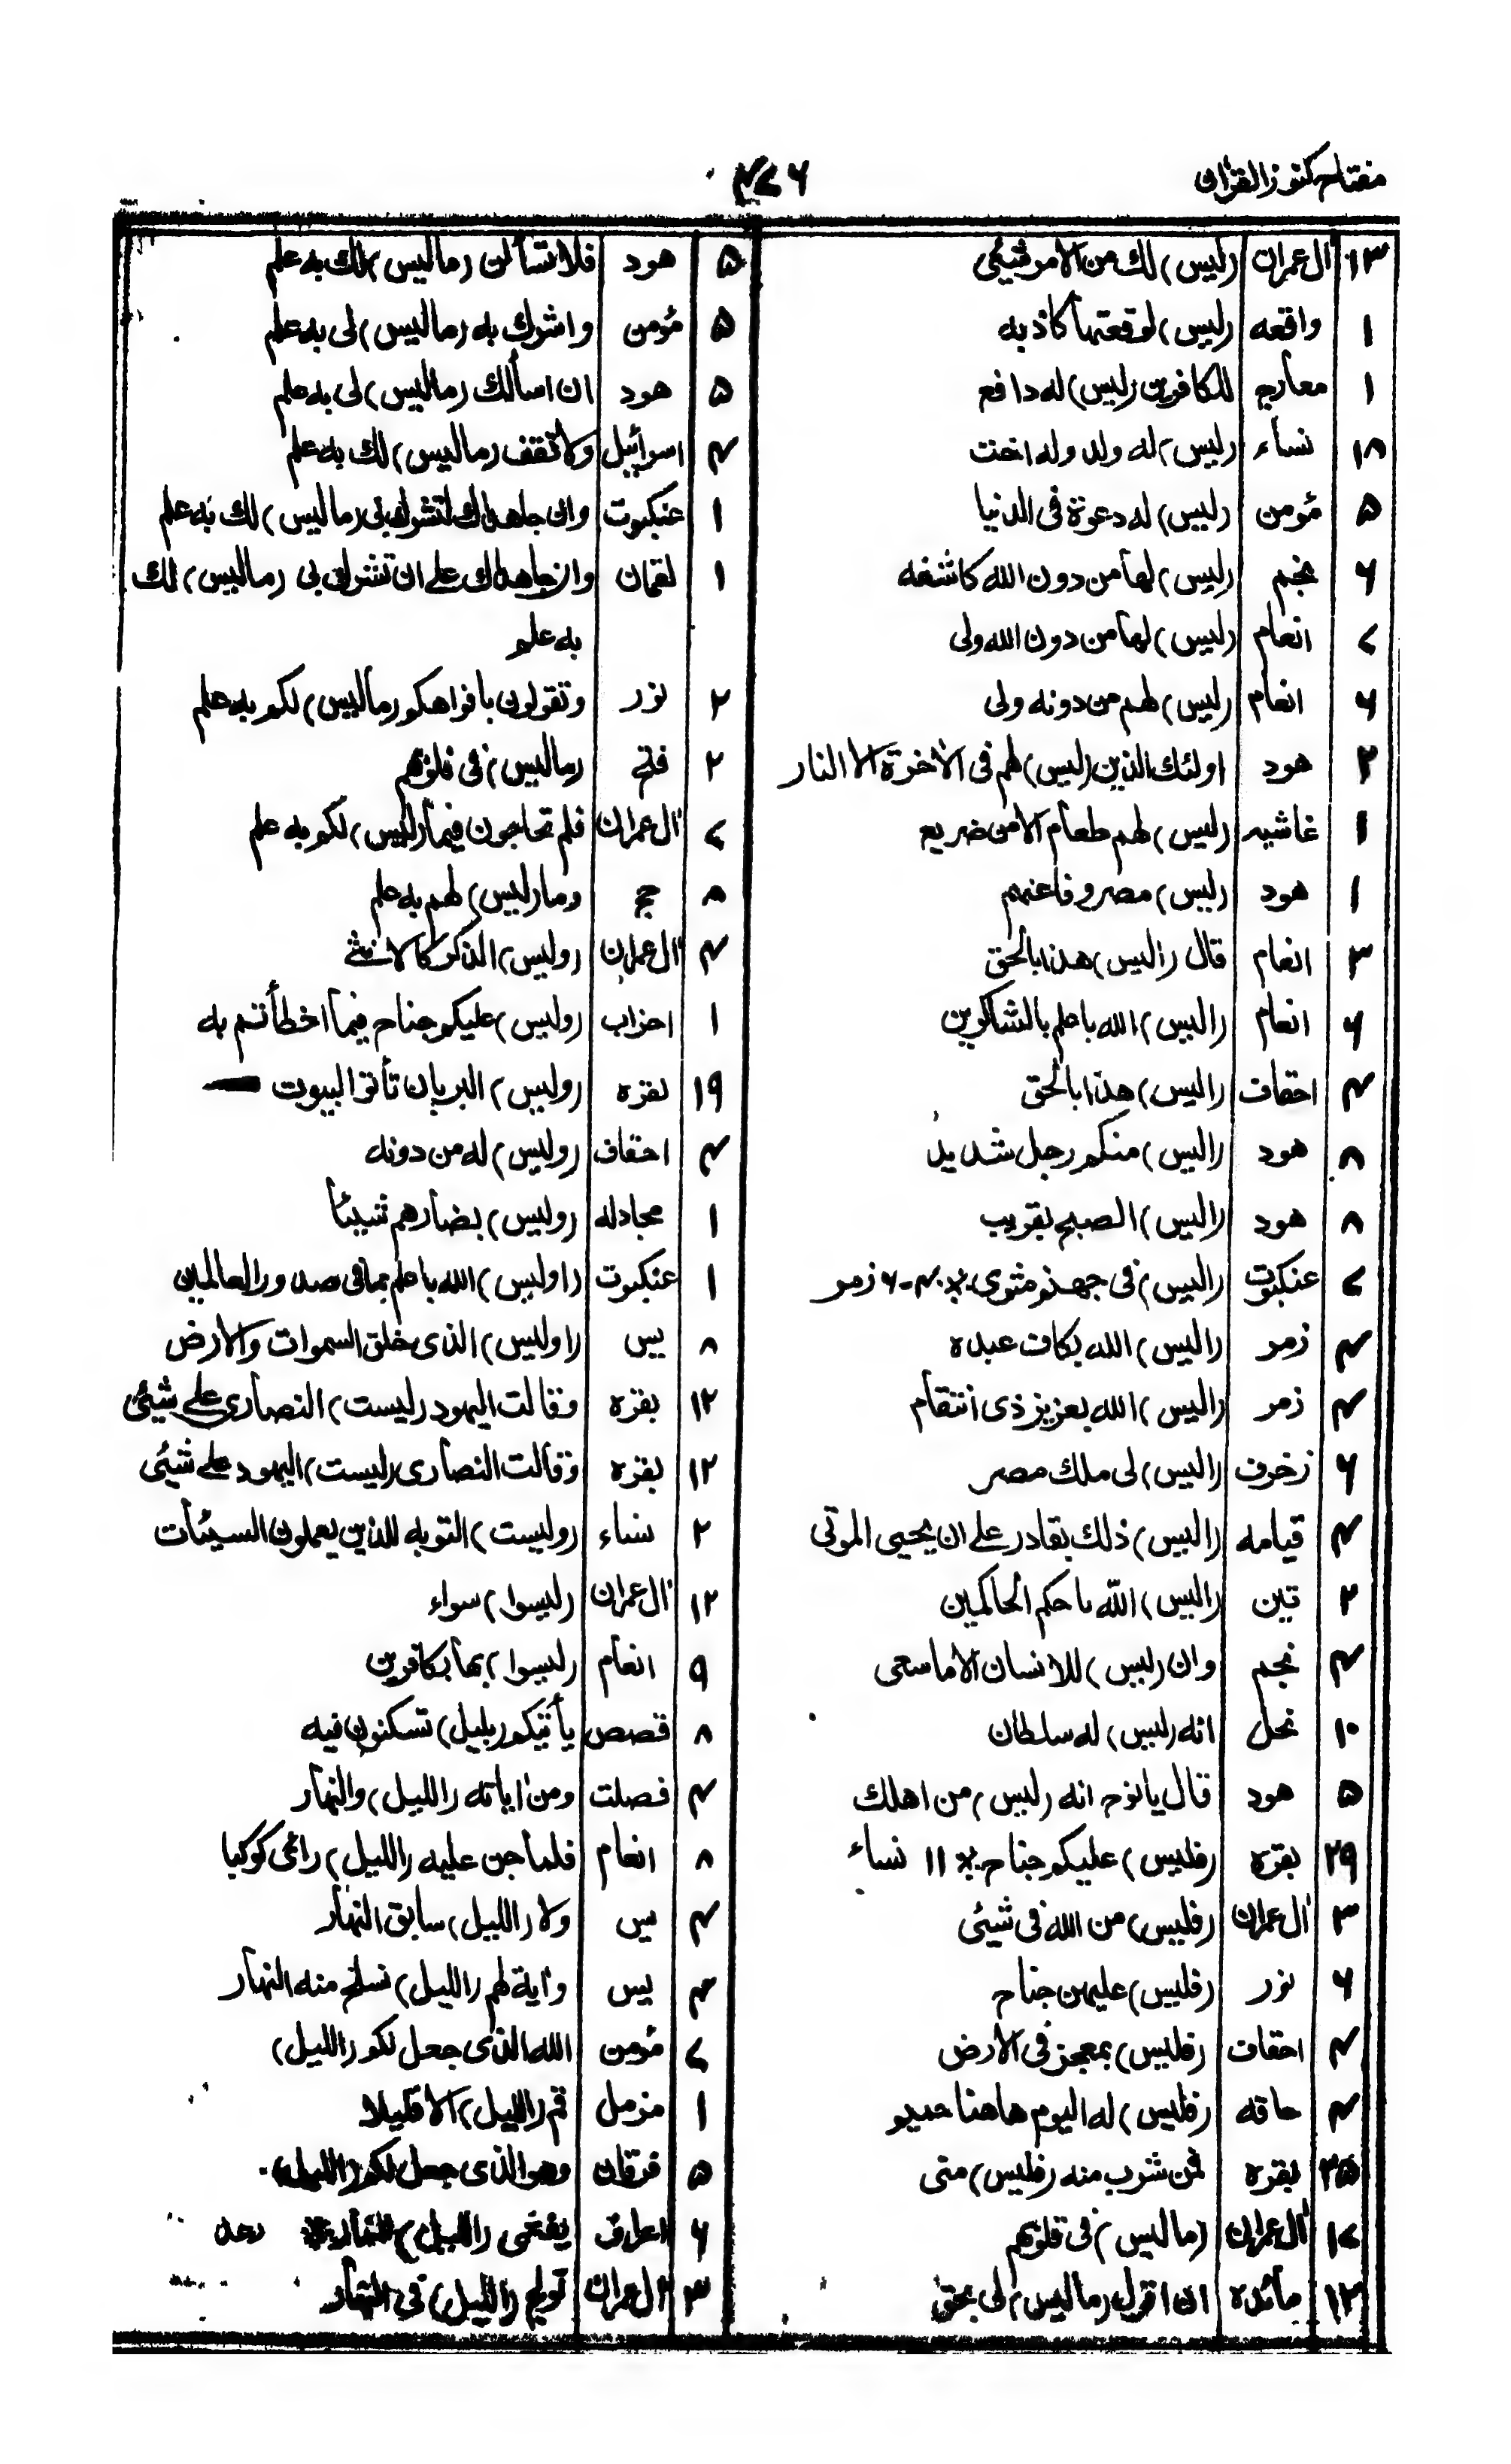 مفتاح كنوز القرآن
۴۷۶
۱۳ ال عمران (ليس) لك من الامر شيئي
۱ واقعه (ليس) لوقعتها كاذبه
۱ معارج للكافرين (ليس) له دافع
۱۸ نساء (ليس) له ولد وله اخت
۵ مؤمن (ليس) له دعوة فى الدنيا
۶ نجم (ليس) لها من دون الله كاشفه
۷ انعام (ليس) لها من دون الله ولى
۶ انعام (ليس) لهم من دونه ولى
۲ هود اولئك الذين (ليس) لهم فى الاخرة الا النار
۱ غاشيه (ليس) لهم طعام الا من ضريع
۱ هود (ليس) مصروفا عنهم
۳ انعام قال (اليس) هذا بالحق
۶ انعام (اليس) الله باعلم بالشاكرين
۴ احقاف (اليس) هذا بالحق
۸ هود (اليس) منكم رجل شديد
۸ هود (اليس) الصبح بقريب
۷ عنكبوت (اليس) فى جهنم مثوى ۴-۶ زمر
۴ زمر (اليس) الله بكاف عبده
۴ زمر (اليس) الله بعزيز ذى انتقام
۶ زخرف (اليس) لى ملك مصر
۴ قيامه (اليس) ذلك بقادر على ان يحيى الموتى
۲ تين (اليس) الله باحكم الحاكمين
۴ نجم وان (ليس) للانسان الا ما سعى
۱۰ نحل انه (ليس) له سلطان
۵ هود قال يا نوح انه (ليس) من اهلك
۲۹ بقره (فليس) عليكم جناح ۱۱ نساء
۳ ال عمران (فليس) من الله فى شيئى
۶ نور (فليس) عليهن جناح
۴ احقاف (فليس) بمعجز فى الارض
۴ حاقه (فليس) له اليوم هاهنا حميم
۳۵ بقره فمن شرب منه (فليس) منى
۱۷ ال عمران (ما ليس) فى قلوبهم
۱۲ مائده ان اقول (ما ليس) لى بحق
۵ هود فلا تسألن (ما ليس) لك به علم
۵ مؤمن واشرك به (ما ليس) لى به علم
۵ هود ان اسألك (ما ليس) لى به علم
۴ اسرائيل ولا تقف (ما ليس) لك به علم
۱ عنكبوت وان جاهداك لتشرك بى (ما ليس) لك به علم
۱ لقمان وان جاهداك على ان تشرك بى (ما ليس) لك
به علم
۲ نور وتقولون بافواهكم (ما ليس) لكم به علم
۲ فتح (ما ليس) فى قلوبهم
۷ ال عمران فلم تحاجون فيما (ليس) لكم به علم
۸ حج وما (ليس) لهم به علم
۴ ال عمران (وليس) الذكر كالانثى
۱ احزاب (وليس) عليكم جناح فيما اخطأتم به
۱۹ بقره (وليس) البر بان تأتوا البيوت
۴ احقاف (وليس) له من دونه
۱ مجادله (وليس) بضارهم شيئا
۱ عنكبوت (اوليس) الله باعلم بما فى صدور العالمين
۸ يس (اوليس) الذى خلق السموات والارض
۱۲ بقره وقالت اليهود (ليست) النصارى على شيئ
۱۲ بقره وقالت النصارى (ليست) اليهود على شيئى
۲ نساء (وليست) التوبه للذين يعملون السيئات
۱۲ ال عمران (ليسوا) سواء
۹ انعام (ليسوا) بها بكافرين
۸ قصص يأتيكم (بليل) تسكنون فيه
۴ فصلت ومن اياته (الليل) والنهار
۸ انعام فلما جن عليه (الليل) رائ كوكبا
۴ يس ولا (الليل) سابق النهار
۳ يس واية لهم (الليل) نسلخ منه النهار
۷ مؤمن الله الذى جعل لكم (الليل)
۱ مزمل قم (الليل) الا قليلا
۵ فرقان وهو الذى جعل لكم (الليل)
۶ اعراف يغشى (الليل) النهار
۳ ال عمران تولج (الليل) فى النهار